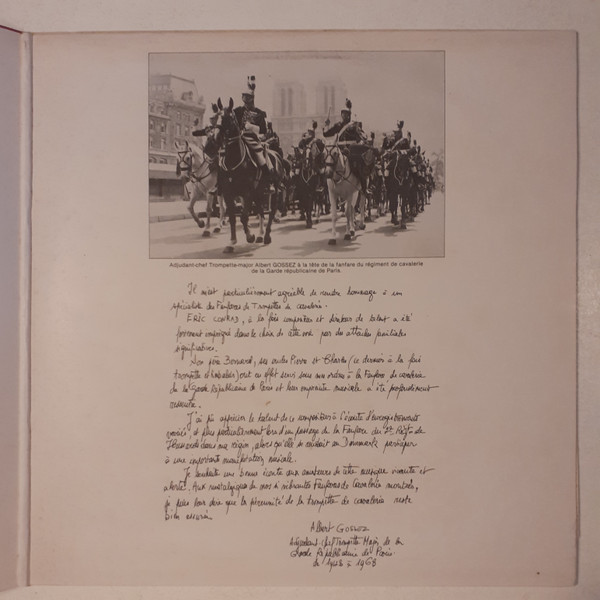 Adjudant-chef Trompette-major Albert GOSSEZ à la tête de la fanfare du régiment de cavalerie
de la Garde républicaine de Paris.
Il m'est particulièrement agréable de rendre hommage à un
spécialiste des Fanfares de Trompettes de cavalerie.
ERIC CONRAD, à la fois compositeur et sonneur de talent a été
fortement imprégné dans le choix de cette voie par des attaches familiales
significatives.
Son père Bernard, ses oncles Pierre et Charles (ce dernier à la fois
trompette et timbalier) ont en effet servi sous mes ordres à la Fanfare de cavalerie
de la Garde Républicaine de Paris et leur empreinte musicale a été profondément
J'ai pu apprécier le talent de ce compositeur à l'écoute d'enregistrements
et plus particulièrement lors d'un passage de la Fanfare du 2e Régt de
Hussards dans ma région, alors qu'elle se rendait au Danemark participer
à une importante manifestation musicale.
Je souhaite une bonne écoute aux amateurs de cette musique vivante et
alerte. Aux nostalgiques de nos si vibrantes Fanfares de Cavalerie montées,
je peux leur dire que la pérennité de la trompette de cavalerie reste
bien assurée.
Albert GOSSEZ
Adjudant-chef Trompette Major de la
Garde Républicaine de Paris
de 1948 à 1968